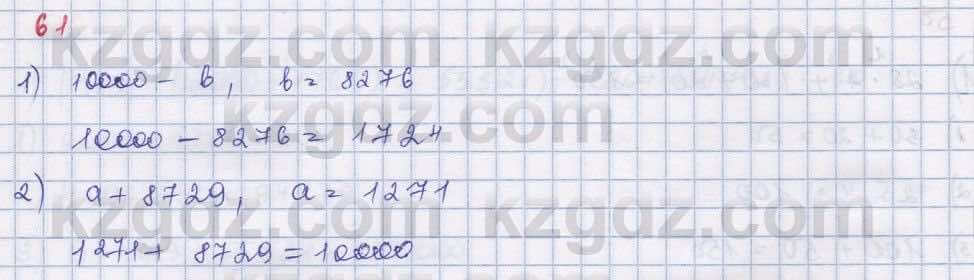 61
1) 10000 - b, b = 8276
10000 - 8276 = 1724
2) a + 8729, a = 1271
1271 + 8729 = 10000
kzgdz.com kzgdz.com
kzgdz.com
kzgdz.com kzgdz.com